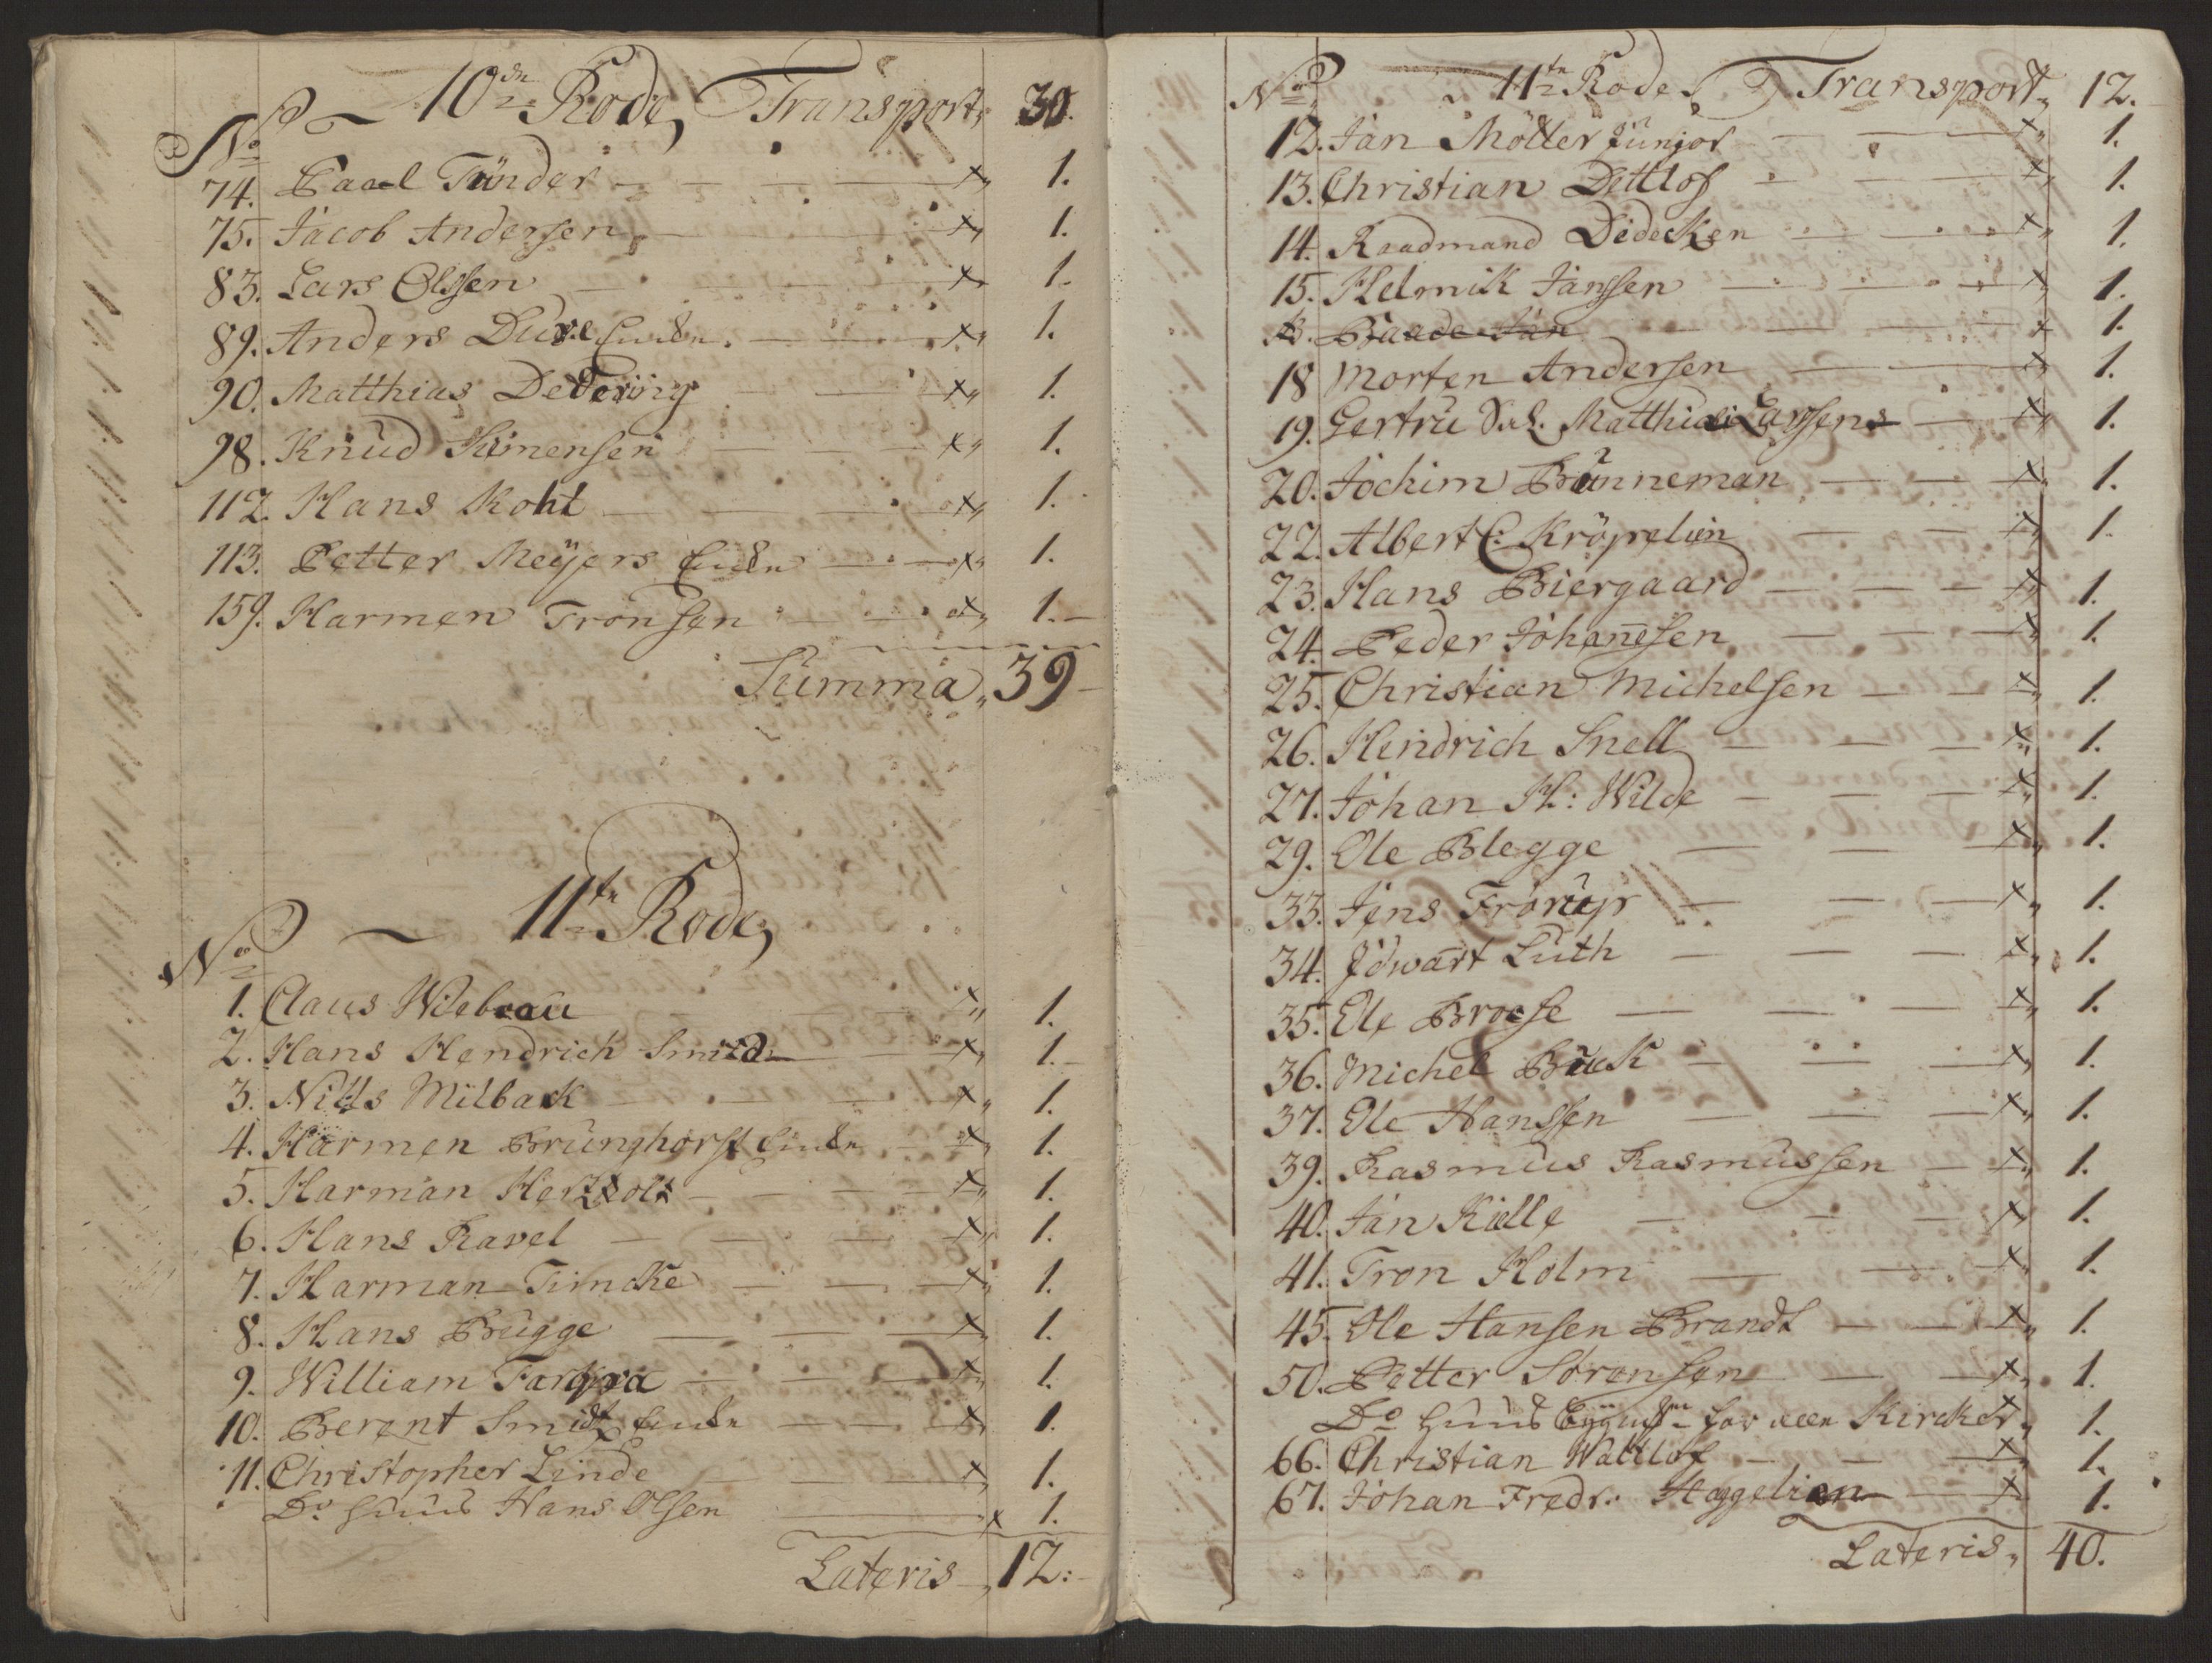 10de Rode, Transport, 30.
No
74. Paal Tünder - - - x„ 1.
75. Jacob Andersen, - - x„ 1.
83. Lars Olssen - - x„ 1.
89. Anders Duve - - x„ 1.
90. Matthias Dedering - - x„ 1.
98. Knud Simensen - - x„ 1.
112. Hans Koht - - x„ 1.
113. Petter Meÿers Encke - - x„ 1.
159. Harmen Tronsen - - x„ 1.
Summa „ 39
11te Rode,
No
1. Claus Wiebeau - - x„ 1.
2. Hans Hendrich Smidt - x„ 1.
3. Nills Milbak - - x„ 1.
4. Harmen Brünghorst Encke - x„ 1.
5. Harman - - x„ 1.
6. Hans Ravel - - x„ 1.
7. Harman Timcke - - x„ 1.
8. Hans Brügge - - x„ 1.
9. William - - x„ 1.
10. Berent Smidt Encke - - x„ 1.
11. Christopher Linde - x„ 1.
Do Huus Hans Olsen - x 1.
Lateris „ 12:
No 11te Rode, Transport„ 12.
12. Jan Möller Junior - - x„ 1.
13. Christian Dettlof - - x„ 1.
14. Raadmand Dedecken - - x„ 1.
15. Helmik Jansen - - x„ 1.
Baade Jan - - x 1.
18 Morten Andersen - - x„ 1.
19. Gertru Sal. Matthias Larssens - x„ 1.
20. Jochim Brünneman - - x„ 1.
22. Albert C: Kröpelien - - x„ 1.
23. Hans Biergaard - - x„ 1.
24. Peder Johanesen - - x„ 1.
25. Christian Michelsen - - x„ 1.
26. Hendrich Snell - - x„ 1.
27. Johan H: Wilde - - x„ 1.
29. Ole Blegge - - x„ 1.
33. Jens Frorup - - x„ 1.
34. Jdwart Luth - - x„ 1.
35. Ole Broese - - x„ 1.
36. Michel Buck - - x„ 1.
37. Ole Hanssen - - x„ 1.
39. Rasmus Rasmussen - x„ 1.
40. Jan Kielle - - x„ 1.
41. Tron Holm - - x„ 1.
45. Ole Hansen Brandt - - x„ 1.
50. Petter Sörensen - - x„ 1.
Do Huus for Kircken x„ 1.
66. Christian Wattlof - - x„ 1.
67. Johan Fredr: Haggelien - x„ 1.
Lateris„ 40.